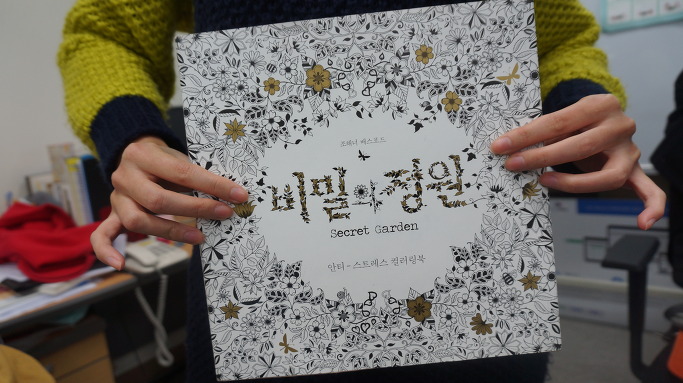 조해너 배스포드
비밀의 정원
Secret Garden
안티-스트레스 컬러링북